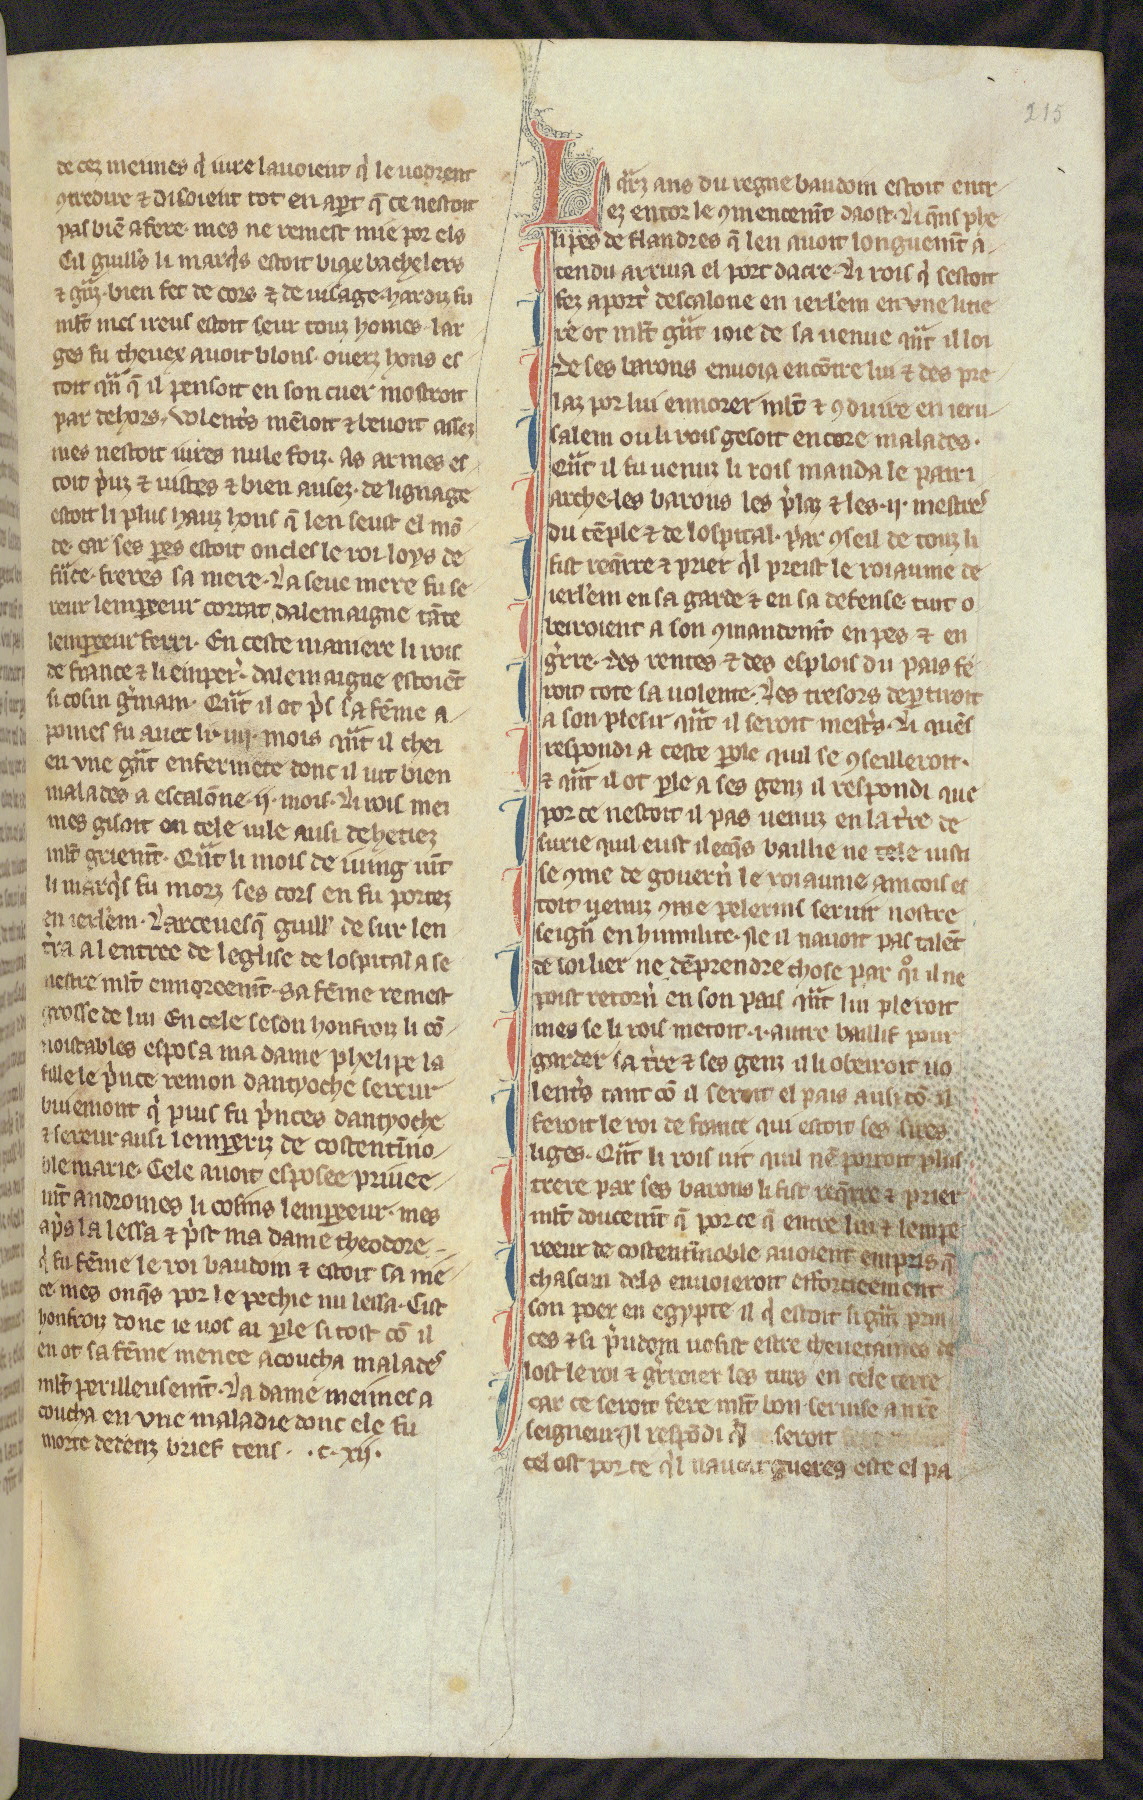 215
de cez meimes q̇ iure lauoient q̇ le uodrent
ꝯtredire ⁊ disoient tot en aꝑt q̄ ce nestoit
pas biē a fere· mes ne remest mie por els
Cil guill's li marq̇s estoit biax bachelers
⁊ gñz· bien fet de cors ⁊ de uisage· hardiz fu
ml̄t mes ireus estoit seur touz homes· lar
ges fu cheuex auoit blons· ouerz hons es
toit qn̄ q̄ il pensoit en son cuer mostroit
par dehors· Volent's mēioit ⁊ beuoit assez
mes nestoit iures nule foiz· As armes es
toit p̓uz ⁊ uistes ⁊ bien ausez· de lignage
estoit li plus hauz hons q̄ len seust el mō
de· car ses ꝑes estoit oncles le roi loys de
frāce· freres sa mere· La seue mere fu se
reur lempereeur corrat dalemaigne tāte
lempereeur ferri· En ceste maniere li rois
de france ⁊ li emper̓· dalemaigne estoiēt
si cosin g̓main· Qūt il ot p̓s sa fēme a
poines fu auec li· iiij· mois qn̄t il chei
en vne gñt enfermete donc il iut bien
malades a escalōne· ij· mois· Li rois mei
mes gisoit en cele uile ausi dehetiez
ml̄t griem̄t· Qūt li mois de iuing uīt
li marq̇s fu morz ses cors en fu portez
en ierl'em· Larceuesq̄ guill' de sur len
t̓ra a lentree de leglise de lospital a se
nestre ml̄t ennoreem̄t· Sa fēme remest
grosse de lui En cele seson honfroiz li cō
noistables esposa ma dame phelipe la
fille le p̓nce remon dantyoche sereur
buiemont q̇ puis fu p̓nces dantyoche
⁊ sereur ausi lemperiz de costentino
ble marie· Cele auoit esposee priuee
m̄t andromes li cosins lempereeur· mes
ap̓s la lessa ⁊ p̓st ma dame theodore
q̇ fu fēme le roi baudoin ⁊ estoit sa nie
ce· mes onq̄s por le pechie nu lessa· Cist
honfroiz donc ie uos ai ꝑle si tost cō il
en ot sa fēme menee acoucha malades
ml̄t perilleusem̄t· La dame meimes a
coucha en vne maladie donc ele fu
morte dedenz brief tens· ·c· xij·
L i q̄rz ans du regne baudoin estoit entr
ez entor le ꝯmencem̄t daost· Li q̄ns phe
lipes de flandres q̄ len auoit longuem̄t a
tendu arriua el port dacre· Li rois q̇ sestoit
fez aport̓ descalone en ierl'em en vne litie
re ot ml̄t gñt ioie de sa uenue qn̄t il loi
De ses barons enuoia encōtre lui ⁊ des pre
laz por lui ennorer ml̄t ⁊ ꝯduire en ieru
salem ou li rois gesoit encore malades·
Qūt il fu uenuz li rois manda le patri
arche· les barons les p̓laz ⁊ les· ij· mestres
du tēple ⁊ de lospital· Par ꝯseil de touz li
fist req̄rre ⁊ prier q̇l preist le roiaume de
ierl'em en sa garde ⁊ en sa defense tuit o
beiroient a son ꝯmandem̄t en pes ⁊ en
g̓rre· Des rentes ⁊ des esplois du pais fe
roit tote sa uolente· Les tresors departiroit
a son plesir qn̄t il seroit mest's· Li quēs
respondi a ceste ꝑole quil se ꝯseilleroit·
⁊ qn̄t il ot ꝑle a ses genz il respondi que
por ce nestoit il pas uenuz en la t̓re de
surie quil eust ilecq̄s baillie ne tele iusti
se ꝯme de gouern̄ le roiaume aincois es
toit uenuz ꝯme pelerins seruir nostre
seign̄ en humilite· Ne il nauoit pas talēt
de soi lier ne dēprendre chose par qͦi il ne
poist retorn̄ en son pais qn̄t lui pleroit
mes se li rois metoit· i· autre baillif pour
garder sa t̓re ⁊ ses genz il li obeiroit uo
lent's tant cō il seroit el pais ausi cō il
feroit le roi de france qui estoit ses sires
liges· Qūt li rois uit quil nē porroit plus
trere par ses barons li fist req̄rre ⁊ prier
ml̄t doucem̄t q̄ por ce q̄ entre lui ⁊ lempe
reeur de costentinoble auoient empris q̄
chascun dels enuoieroit efforcieement
son poer en egypte il q̇ estoit si gñt prin
ces ⁊ si p̓udom uosist estre cheuetaines de
lost le roi ⁊ g̓rroier les turs en cele terre
car ce seroit fere ml̄t bon seruise a nr̄e
seigneur Il respōdi q̇l seroit
cel ost por ce q̇l nauoit gueres este el pa